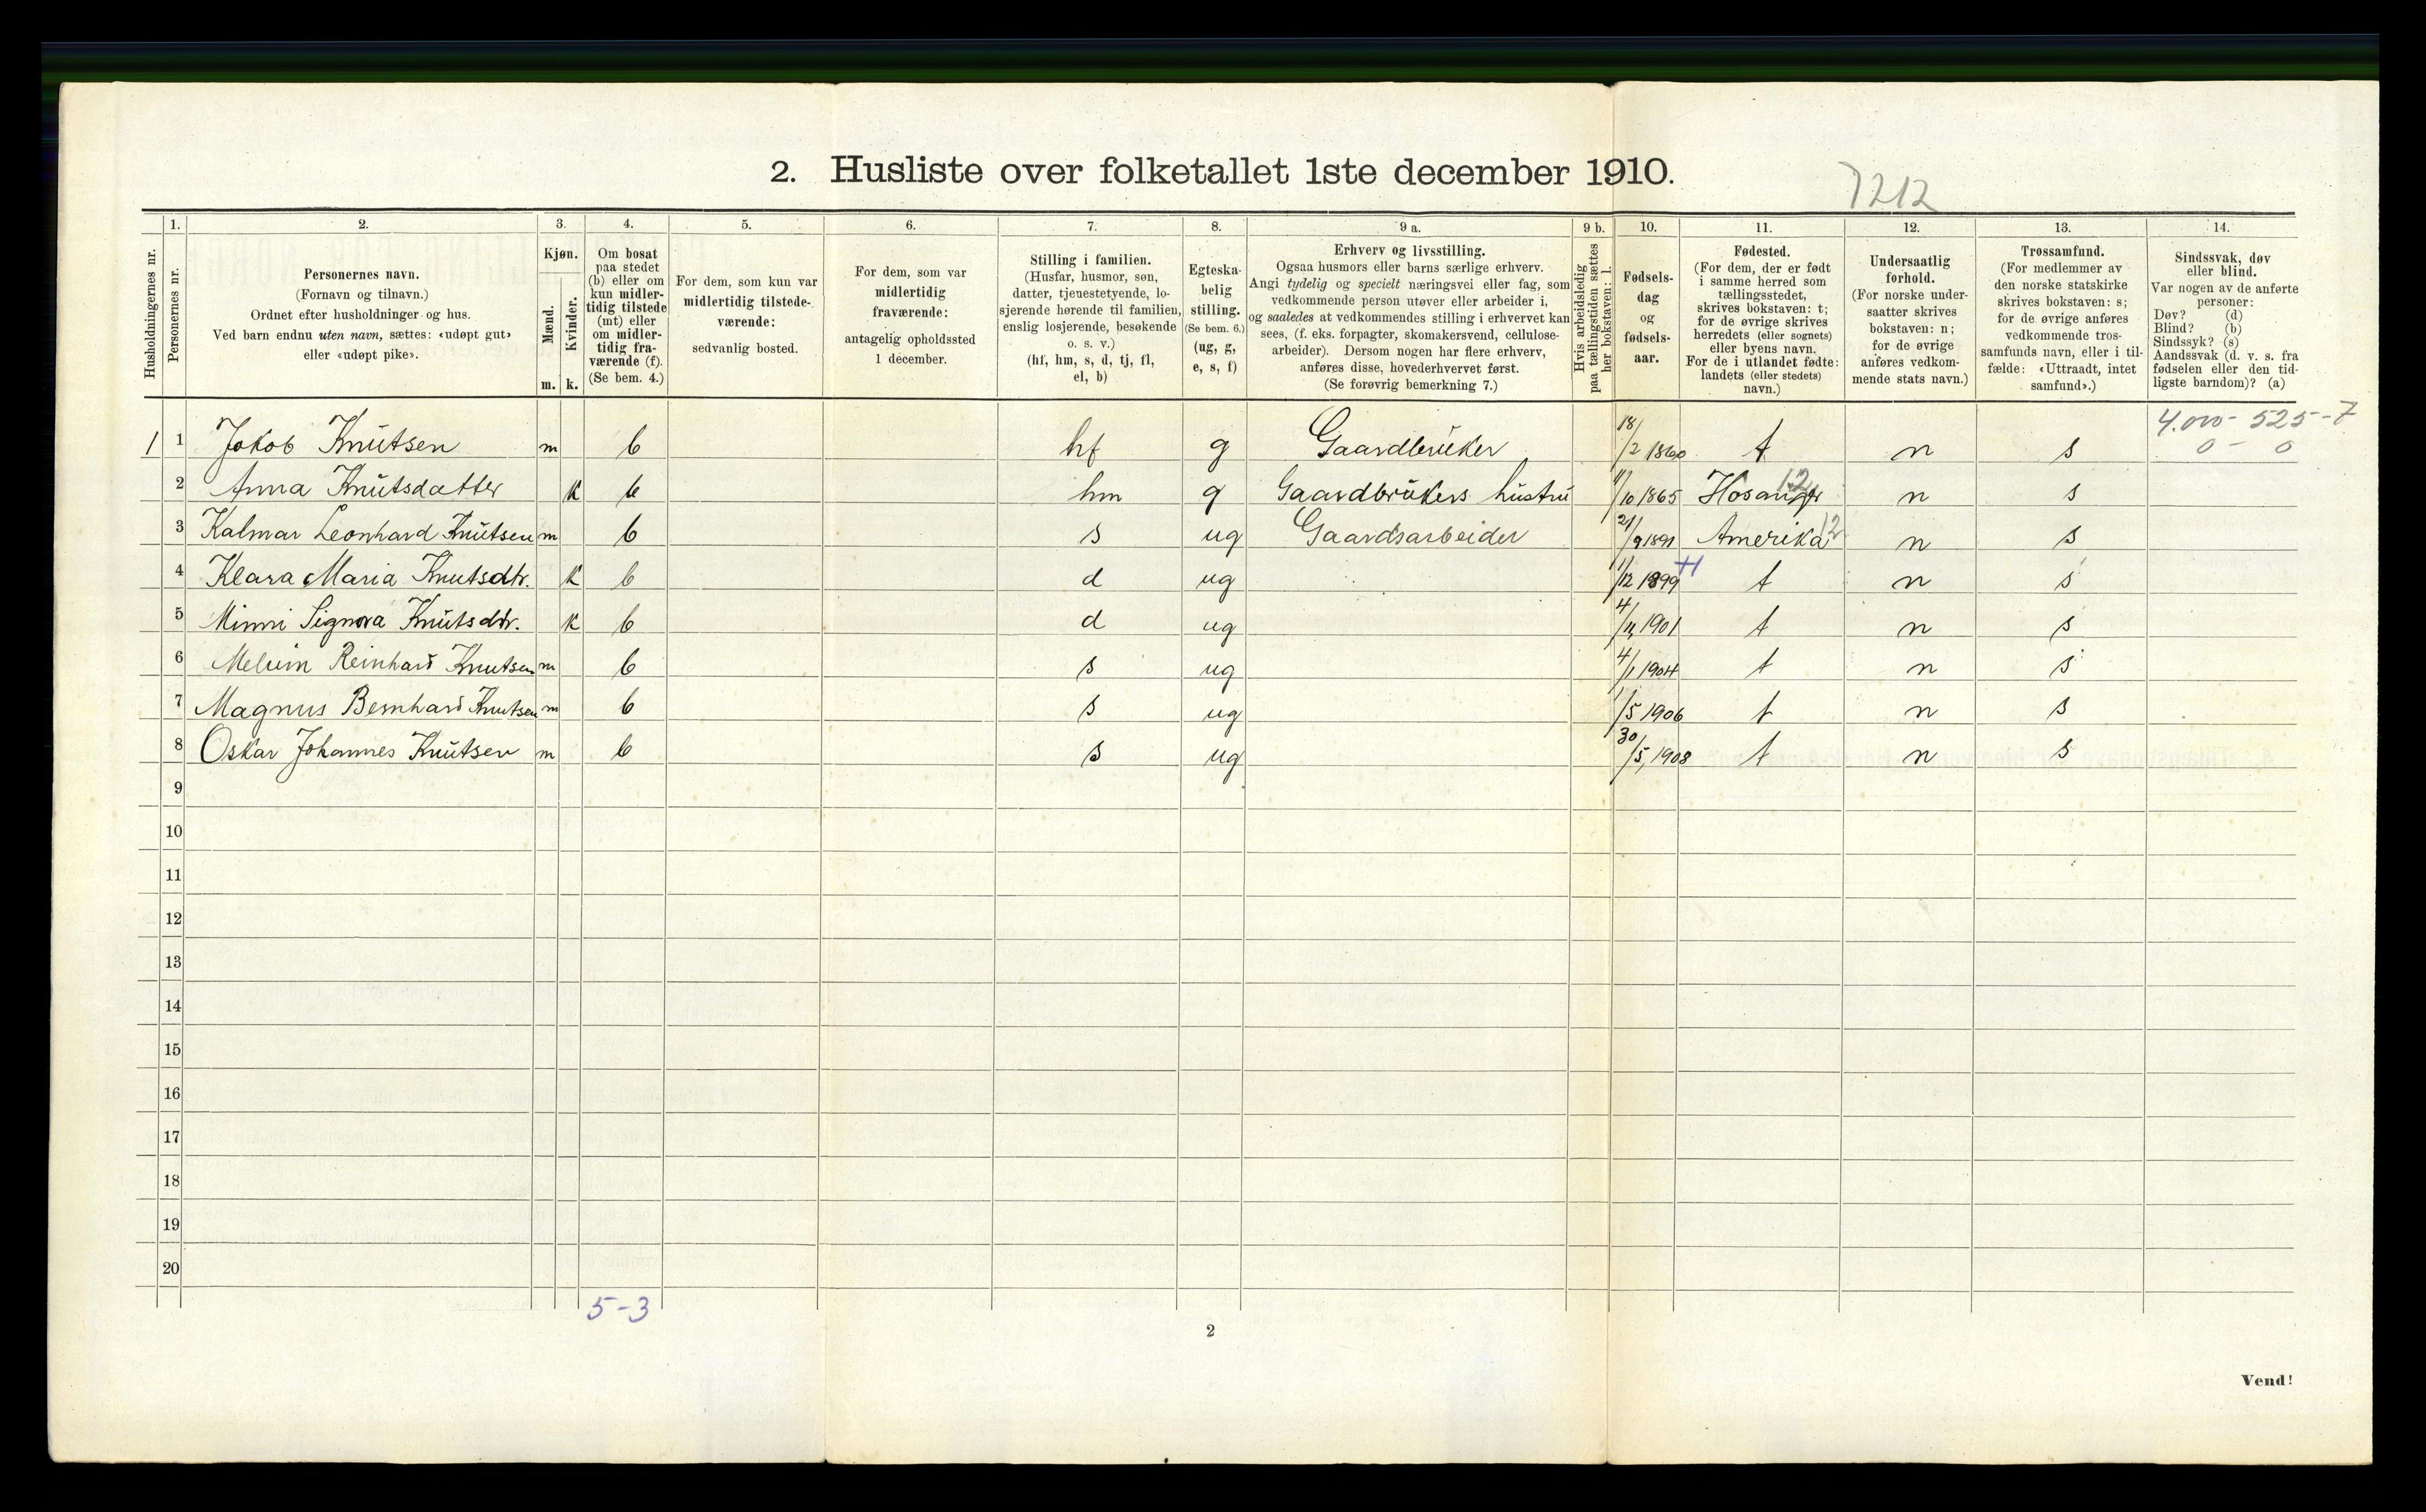 2. Husliste over folketallet 1ste december 1910.
7212
Husholdningernes nr.
1.
Personernes nr.
2.
Personernes navn.
(Fornavn og tilnavn.)
Ordnet efter husholdninger og hus.
Ved barn endnu uten navn, sættes: «udøpt gut»
eller «udøpt pike».
3.
Kjøn.
Mænd.
Kvinder.
m. k.
4.
Om bosat
paa stedet
(b) eller om
kun midler-
tidig tilstede
(mt) eller
om midler-
tidig fra-
værende (f).
(Se bem. 4.)
5.
For dem, som kun var
midlertidig tilstede-
værende:
sedvanlig bosted.
6.
For dem, som var
midlertidig
fraværende:
antagelig opholdssted
1 december.
7.
Stilling i familien.
(Husfar, husmor, søn,
datter, tjenestetyende, lo-
sjerende hørende til familien,
enslig losjerende, besøkende
o. s. v.)
(hf, hm, s, d, tj, fl,
el, b)
8.
Egteska-
belig
stilling.
(Se bem. 6.)
(ug, g,
e, s, f)
9 a.
Erhverv og livsstilling.
Ogsaa husmors eller barns særlige erhverv.
Angi tydelig og specielt næringsvei eller fag, som
vedkommende person utøver eller arbeider i,
og saaledes at vedkommendes stilling i erhvervet kan
sees, (f. eks. forpagter, skomakersvend, cellulose-
arbeider). Dersom nogen har flere erhverv,
anføres disse, hovederhvervet først.
(Se forøvrig bemerkning 7.)
9 b.
Hvis arbeidsledig
paa tællingstiden sættes
her bokstaven: l.
10.
Fødsels-
dag
og
fødsels-
aar.
11.
Fødested.
(For dem, der er født
i samme herred som
tællingsstedet,
skrives bokstaven: t;
for de øvrige skrives
herredets (eller sognets)
eller byens navn.
For de i utlandet fødte:
landets (eller stedets)
navn.)
12.
Undersaatlig
forhold.
(For norske under-
saatter skrives
bokstaven: n;
for de øvrige
anføres vedkom-
mende stats navn.)
13.
Trossamfund.
(For medlemmer av
den norske statskirke
skrives bokstaven: s;
for de øvrige anføres
vedkommende tros-
samfunds navn, eller i til-
fælde: «Uttraadt, intet
samfund».)
14.
Sindssvak, døv
eller blind.
Var nogen av de anførte
personer:
Døv? (d)
Blind? (b)
Sindssyk? (s)
Aandssvak (d. v. s. fra
fødselen eller den tid-
ligste barndom)? (a)
4.000 - 525 - 7
0 - 0
1 1 Jakob Knutsen m b hf g Gaardbruker 18/2 1860 t n s
2 Anna Knutsdatter k b hm g Gaardbrukers hustru 11/10 1865 Hosanger 12 n s
3 Kalmar Leonhard Knutsen m b s ug Gaardsarbeider 21/9 1891 Amerika 12 n s
4 Klara Maria Knutsdtr. k b d ug 11/12 1899 t n s
5 Minni Signora Knutsdtr. k b d ug 4/11 1901 t n s
6 Melvin Reinhard Knutsen m b s ug 4/1 1904 t n s
7 Magnus Bernhard Knutsen m b s ug 1/5 1906 t n s
8 Oskar Johannes Knutsen m b s ug 30/5 1908 t n s
9
10
11
12
13
14
15
16
17
18
19
20
5-3
2
Vend!